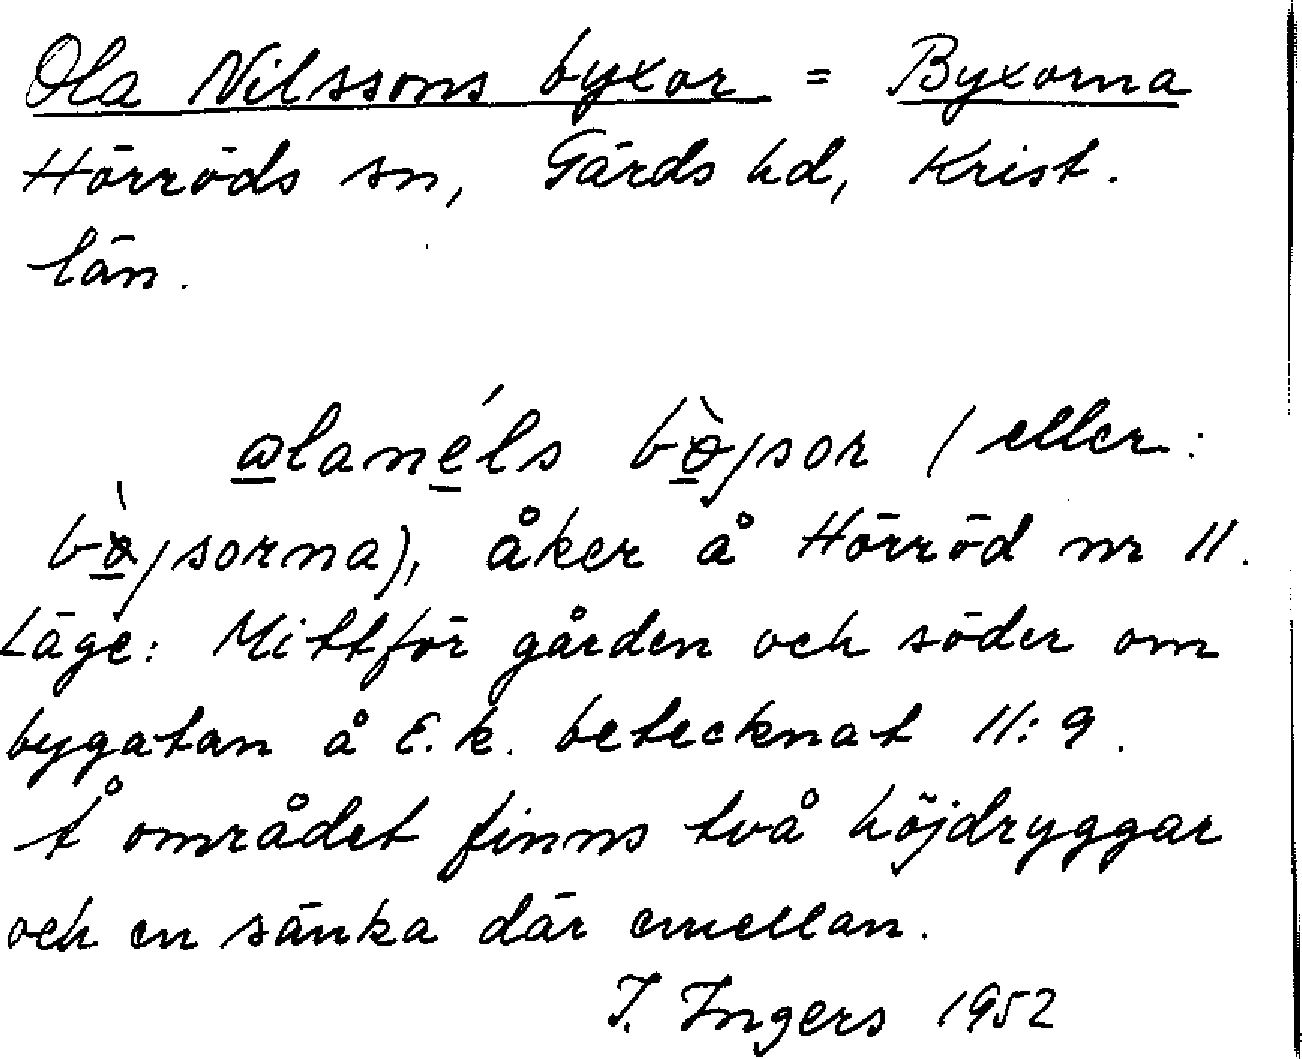 Ola Nilssons byxor = Byxorna
Hörröds sn, Gärds hd, Krist.
län.
ɷlanéls bø̀jsor (eller:
bø̀jsorna), åker å Hörröd nr 11.
Läge: Mittför gården och söder om
bygatan å E.k. betecknat 11:9.
Å området finns två höjdryggar
och en sänka där emellan.
I. Ingers 1952